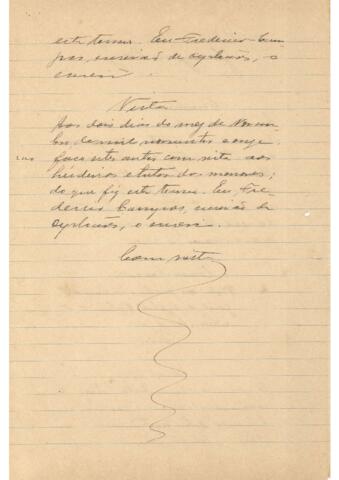 este termo. Eu Frederico Cam-
pos, escrivão de orphãos, o
escrevi.
Vista
Aos dois dias do mez de Novem-
bro de mil novecentos e onze
faço estes autos com vista aos
herdeiros e tutor dos menores;
do que fiz este termo. Eu, Fre-
derico Campos, escrivão de
orphãos, o escrevi.
Com vista